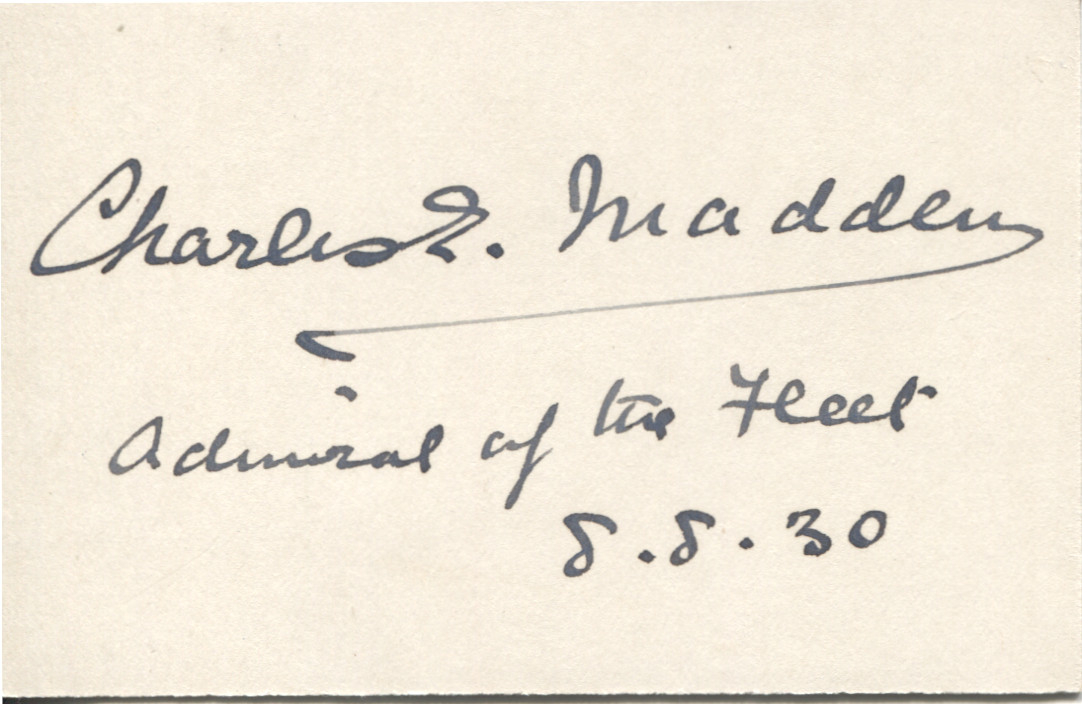 Charles E. Madden
Admiral of the Fleet
8.8.30